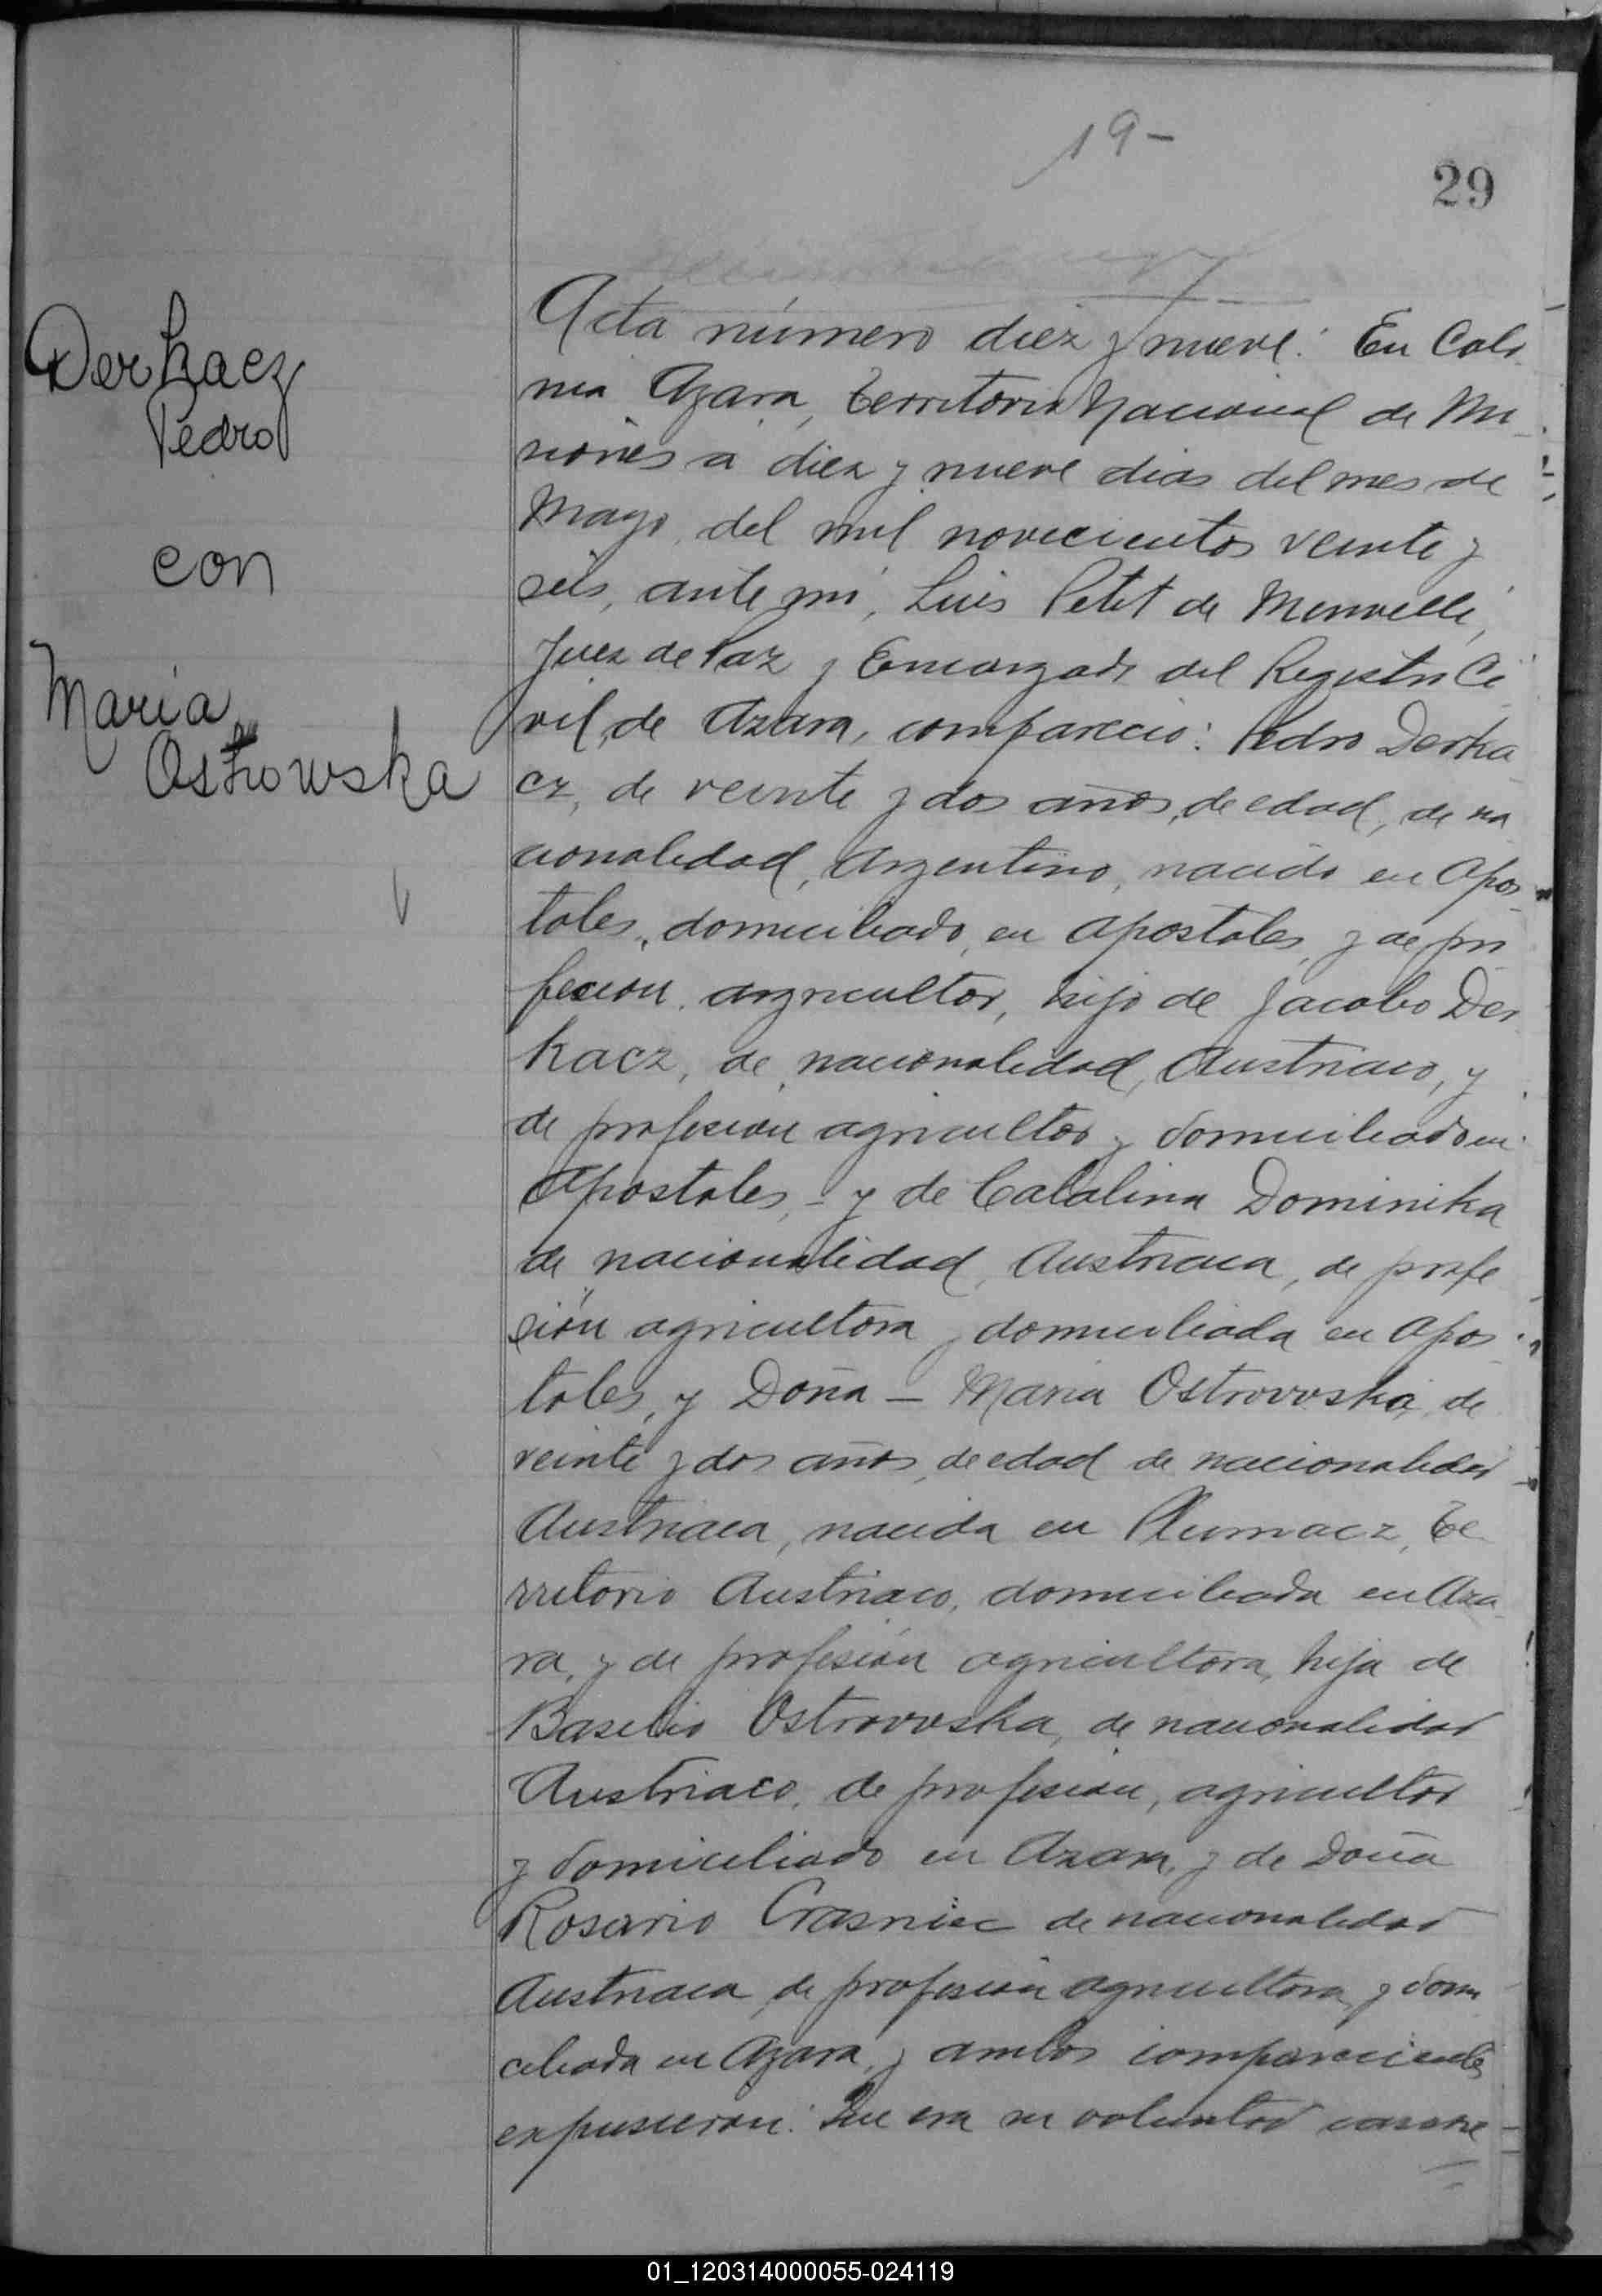 19-
29
Derkacz
Pedro
con
Maria
Ostrowska
Acta número diez y nueve: En Colo
nia Azara, Territorio Nacional de Mi
siones a diez y nueve dias del mes de
Mayo, del mil novecientos veinte y
seis, ante mi, Luis Petit de Meurville,
Juez de Paz y Encargado del Registro Ci
vil, de Azara, comparecio: Pedro Derka
cz, de veinte y dos años, de edad, de na
cionalidad, Argentino, nacido en Apos
toles, domiciliado, en Apostoles, y de pro
fesion, agricultor, hijo de Jacobo Der
kacz, de nacionalidad, Austriaco, y
de profesion agricultor y domiciliado en
Apostoles, - y de Catalina Dominika
de nacionalidad, Austriaca, de profe
sión agricultora y domiciliada en Apos
toles, y Doña - Maria Ostrovvska, de
veinte y dos años, de edad de nacionalidad
Austriaca, nacida en Tlumacz, Te
rritorio Austriaco, domiciliada en Aza
ra, y de profesión agricultora, hija de
Basilio Ostrovvska, de nacionalidad
Austriaco, de profesion, agricultor
y domiciliado en Azara, y de Doña
Rosario Crasniec de nacionalidad
Austriaca, de profesion agricultora, y domi
ciliada en Azara, y ambos comparecientes
expusieron: Que era su voluntad casarse
01_120314000055-024119